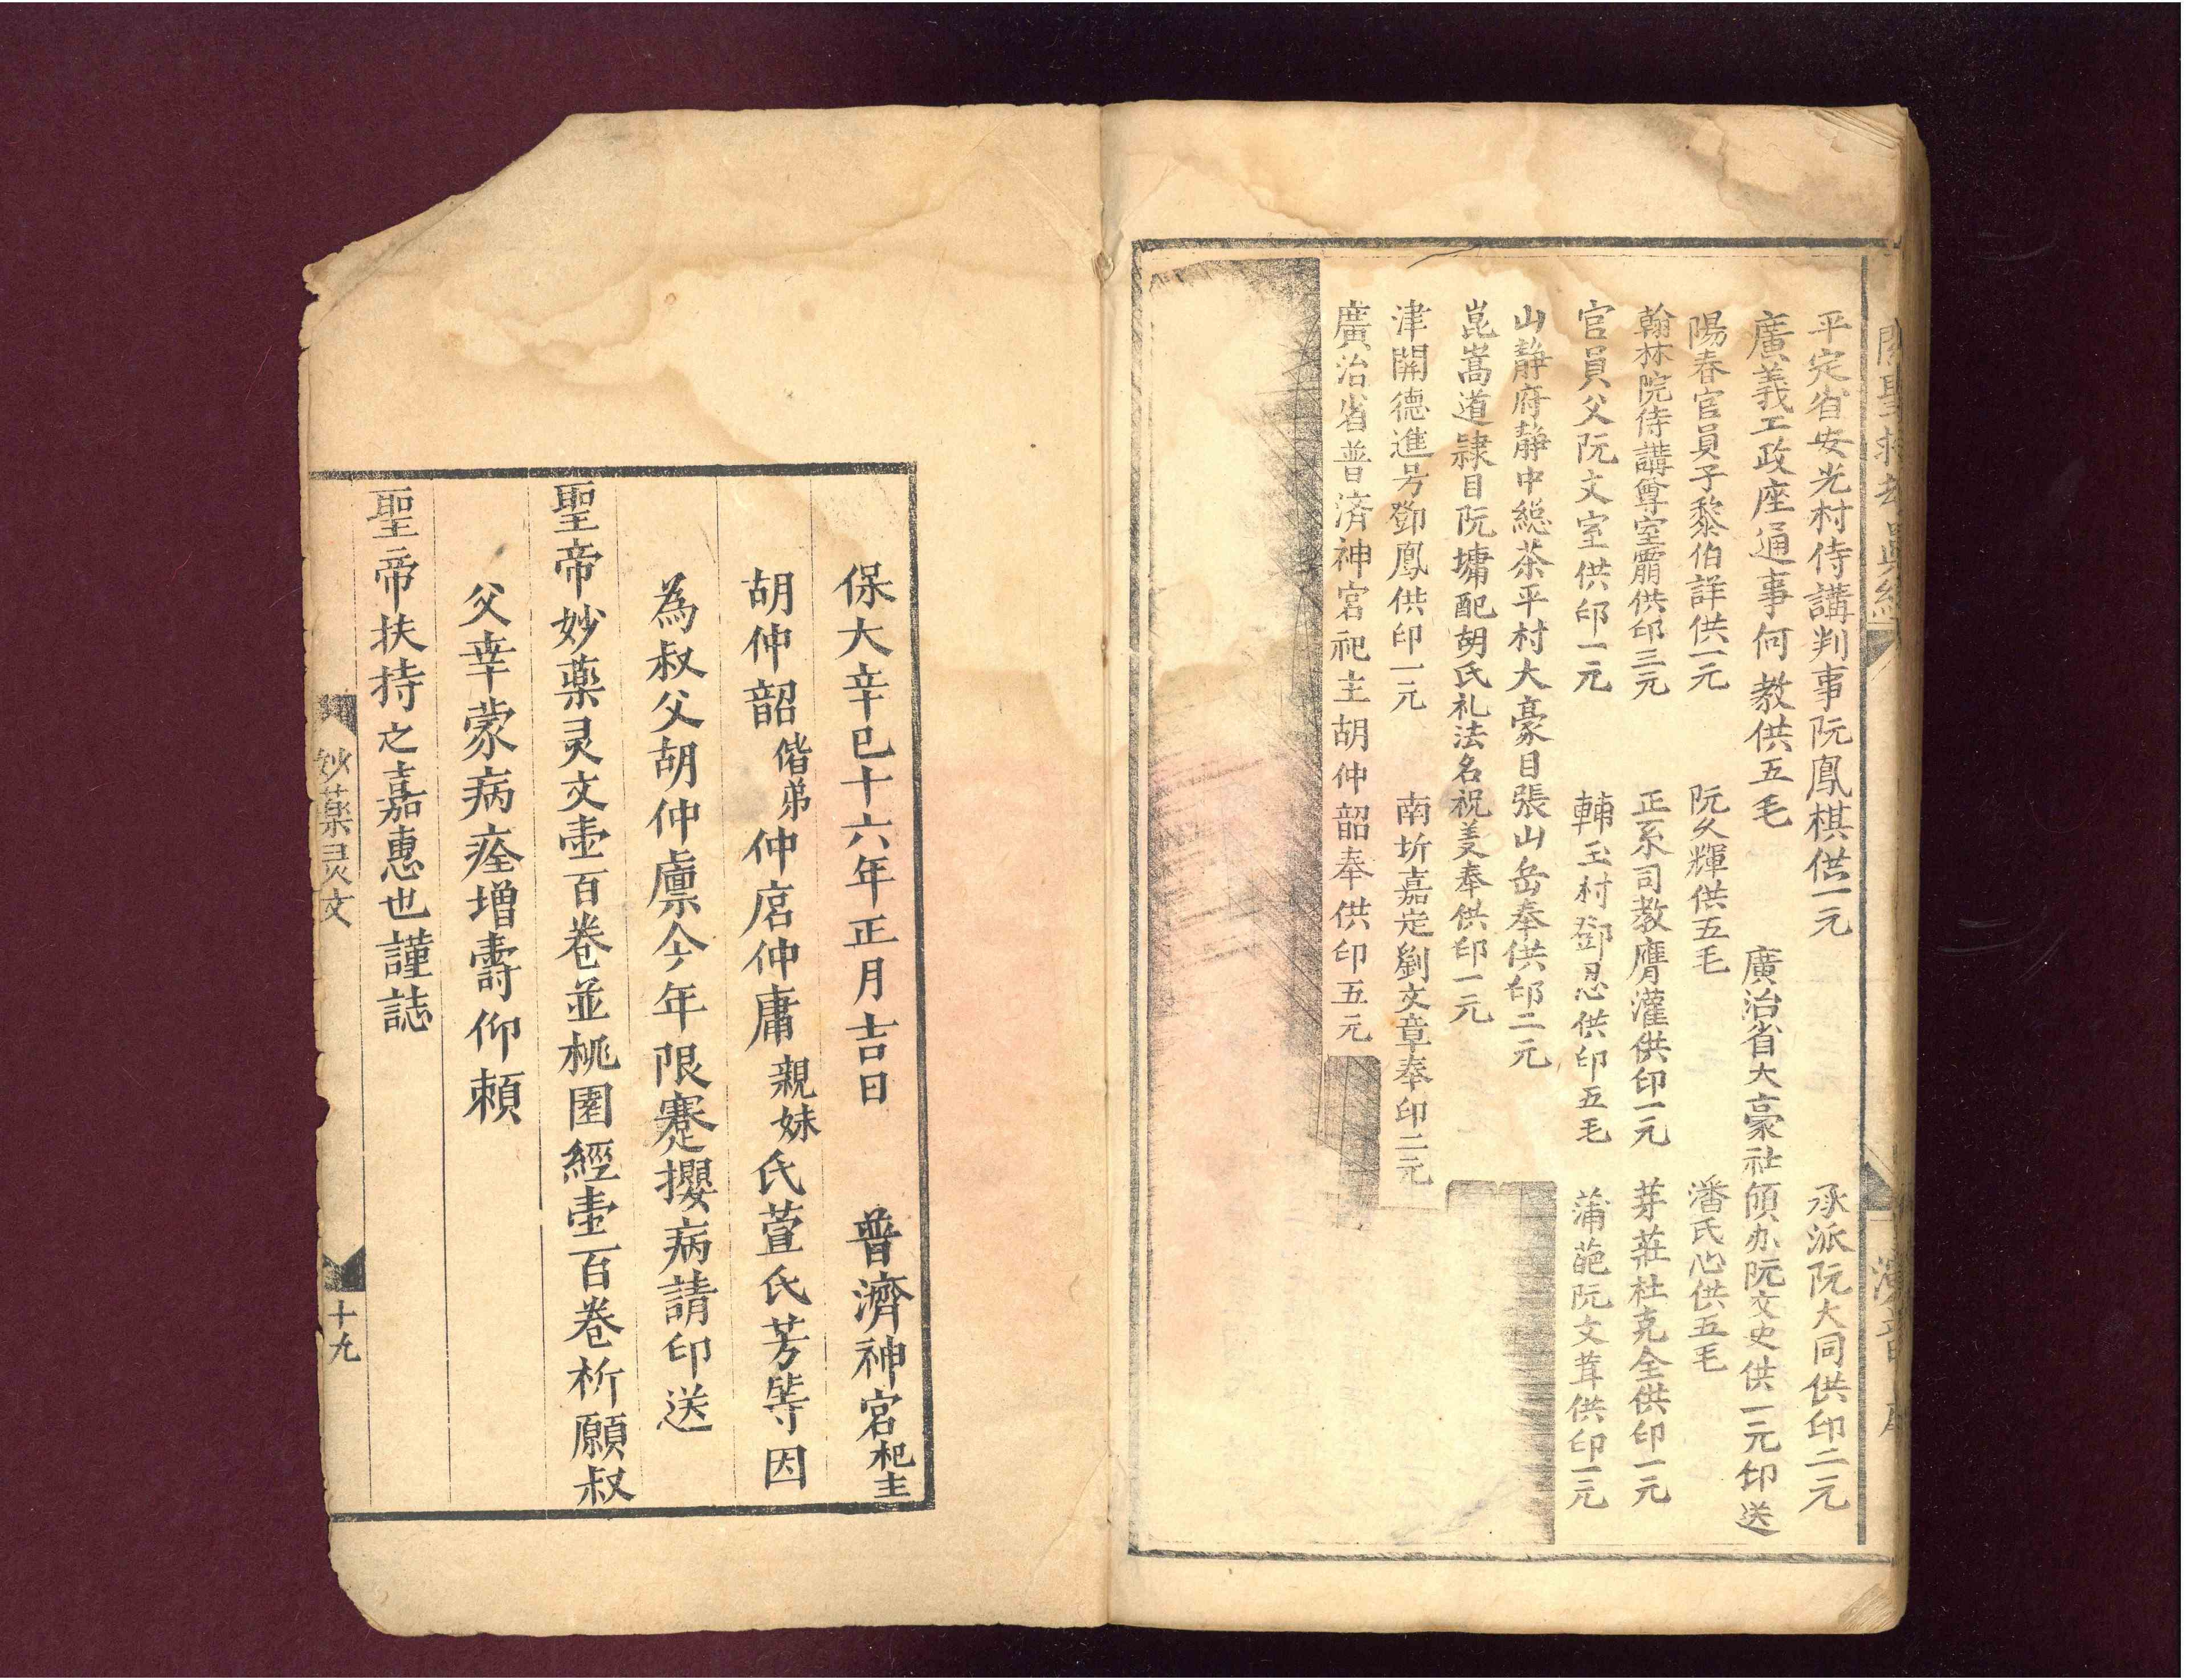 平定省安光村侍講判事阮鳳棋供一元　承派阮大同供印二元
廣義工政座通事何教供五毛　廣治省大豪社傾办阮文史供一元印送
陽春官員子黎伯詳供一元　阮久輝供五毛　潘氏心供五毛
翰林院侍講尊室霸供印三元　正系司教膺灌供印一元　芽莊杜克全供印一元
官員父阮文室供印一元　輔玉村鄧恩供印五毛　蒲葩阮文茸供印一元
山靜府靜中総茶平村大豪目張山岳奉供印二元
崑嵩道隷目阮墉配胡氏礼法名祝美奉供印一元
津開德進号鄧鳳供印一元　南圻嘉定劉文章奉印二元
廣治省普濟神宮祀主胡仲韶奉供印五元
保大辛巳十六年正月吉日　普濟神宮祀主
胡仲韶偕弟仲店仲庸親妹氏萱氏芳等因
為叔父胡仲㢡今年限蹇攖病請印送
聖帝妙薬灵文壹百卷並桃園經壹百卷祈願叔
父幸蒙病痊增壽仰賴
聖帝扶持之嘉惠也謹誌
妙薬灵文
十九